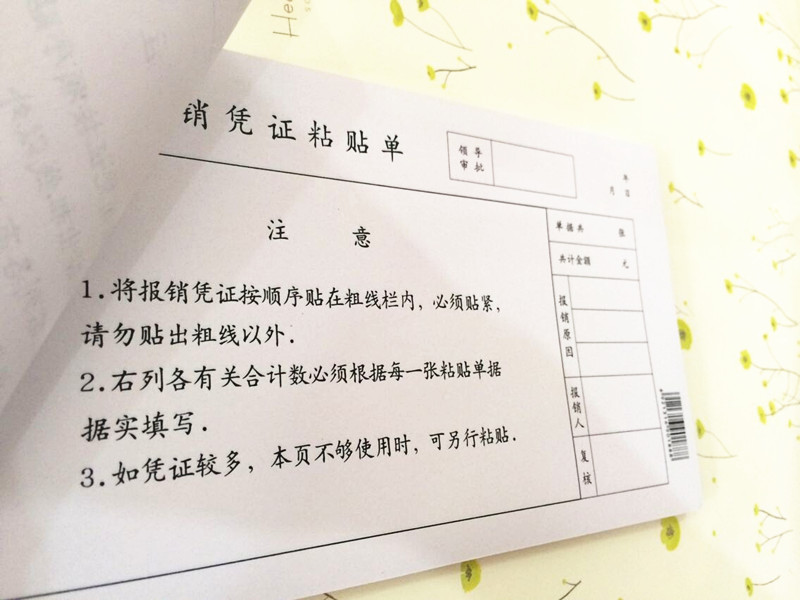 销凭证粘贴单
领导
审批
年
月 日
注 意
1.将报销凭证按顺序贴在粗线栏内，必须贴紧，
请勿贴出粗线以外.
2.右列各有关合计数必须根据每一张粘贴单据
据实填写.
3.如凭证较多，本页不够使用时，可另行粘贴.
单据共 张
共计金额 元
报销原因
报销人
复核